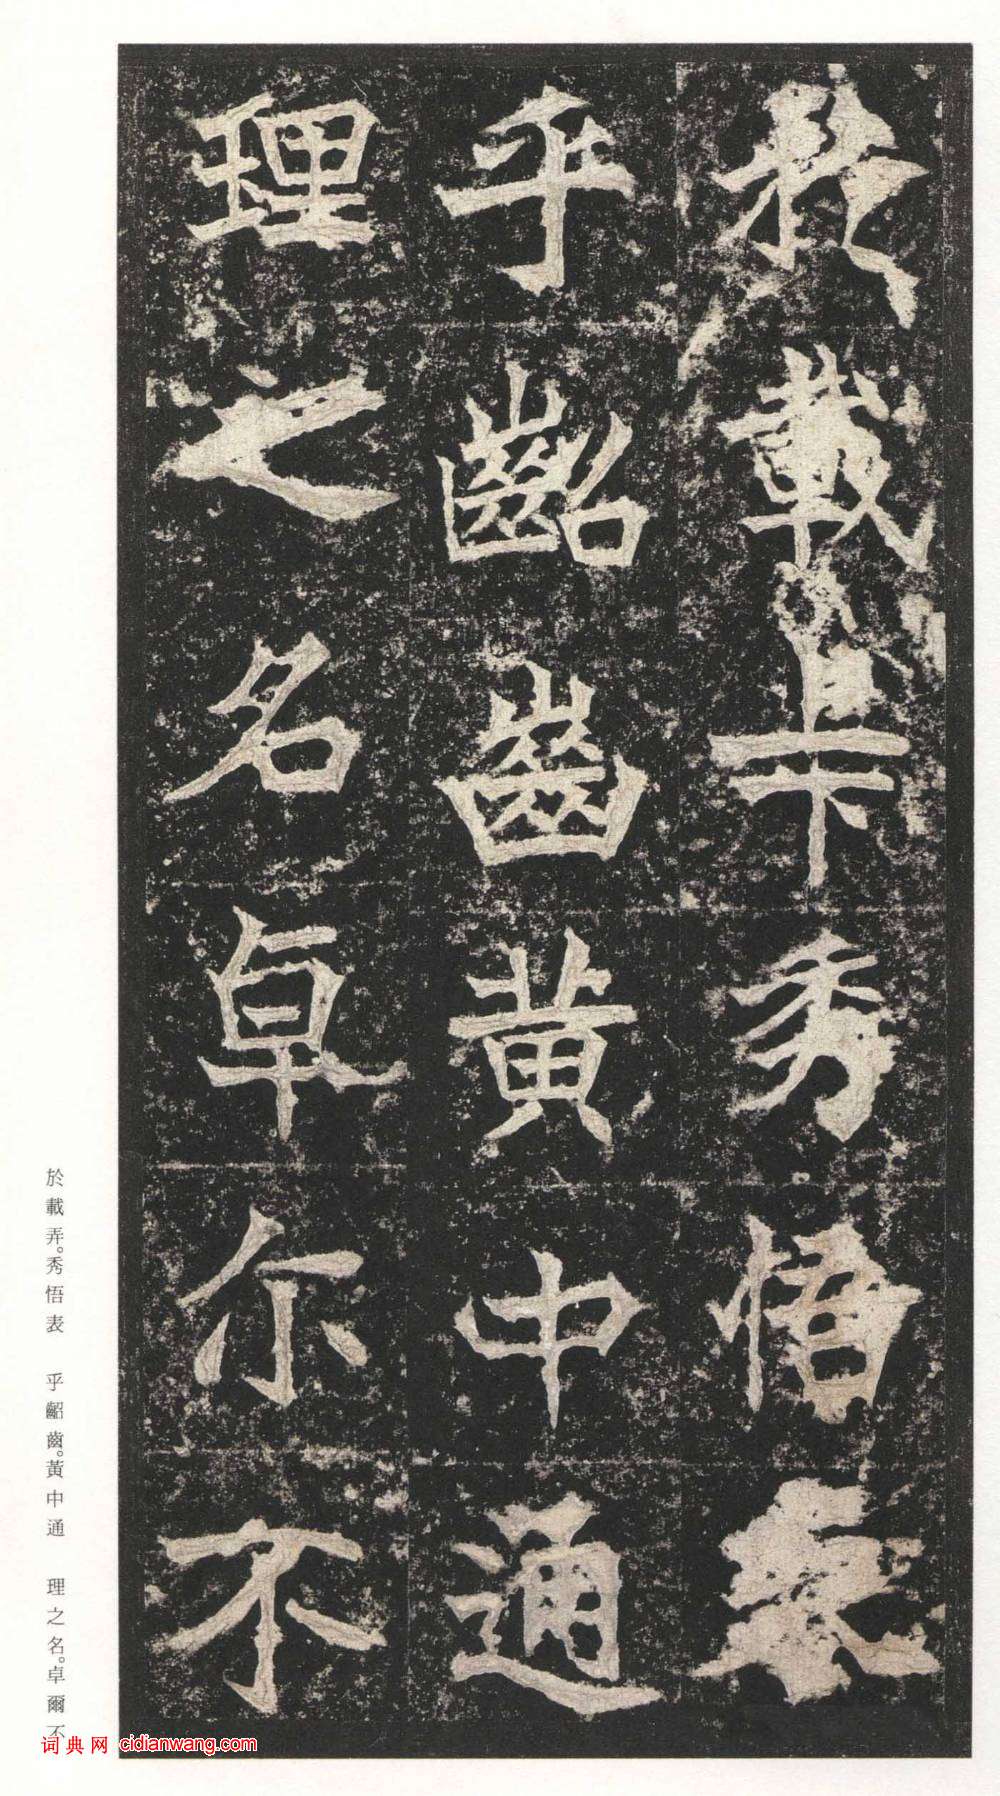 於載卞秀悟表
乎齠齒黃中通
理之名卓尓不
於載弄。秀悟表 乎齠齒。黃中通 理之名。卓爾不
词典网 cidianwang.com